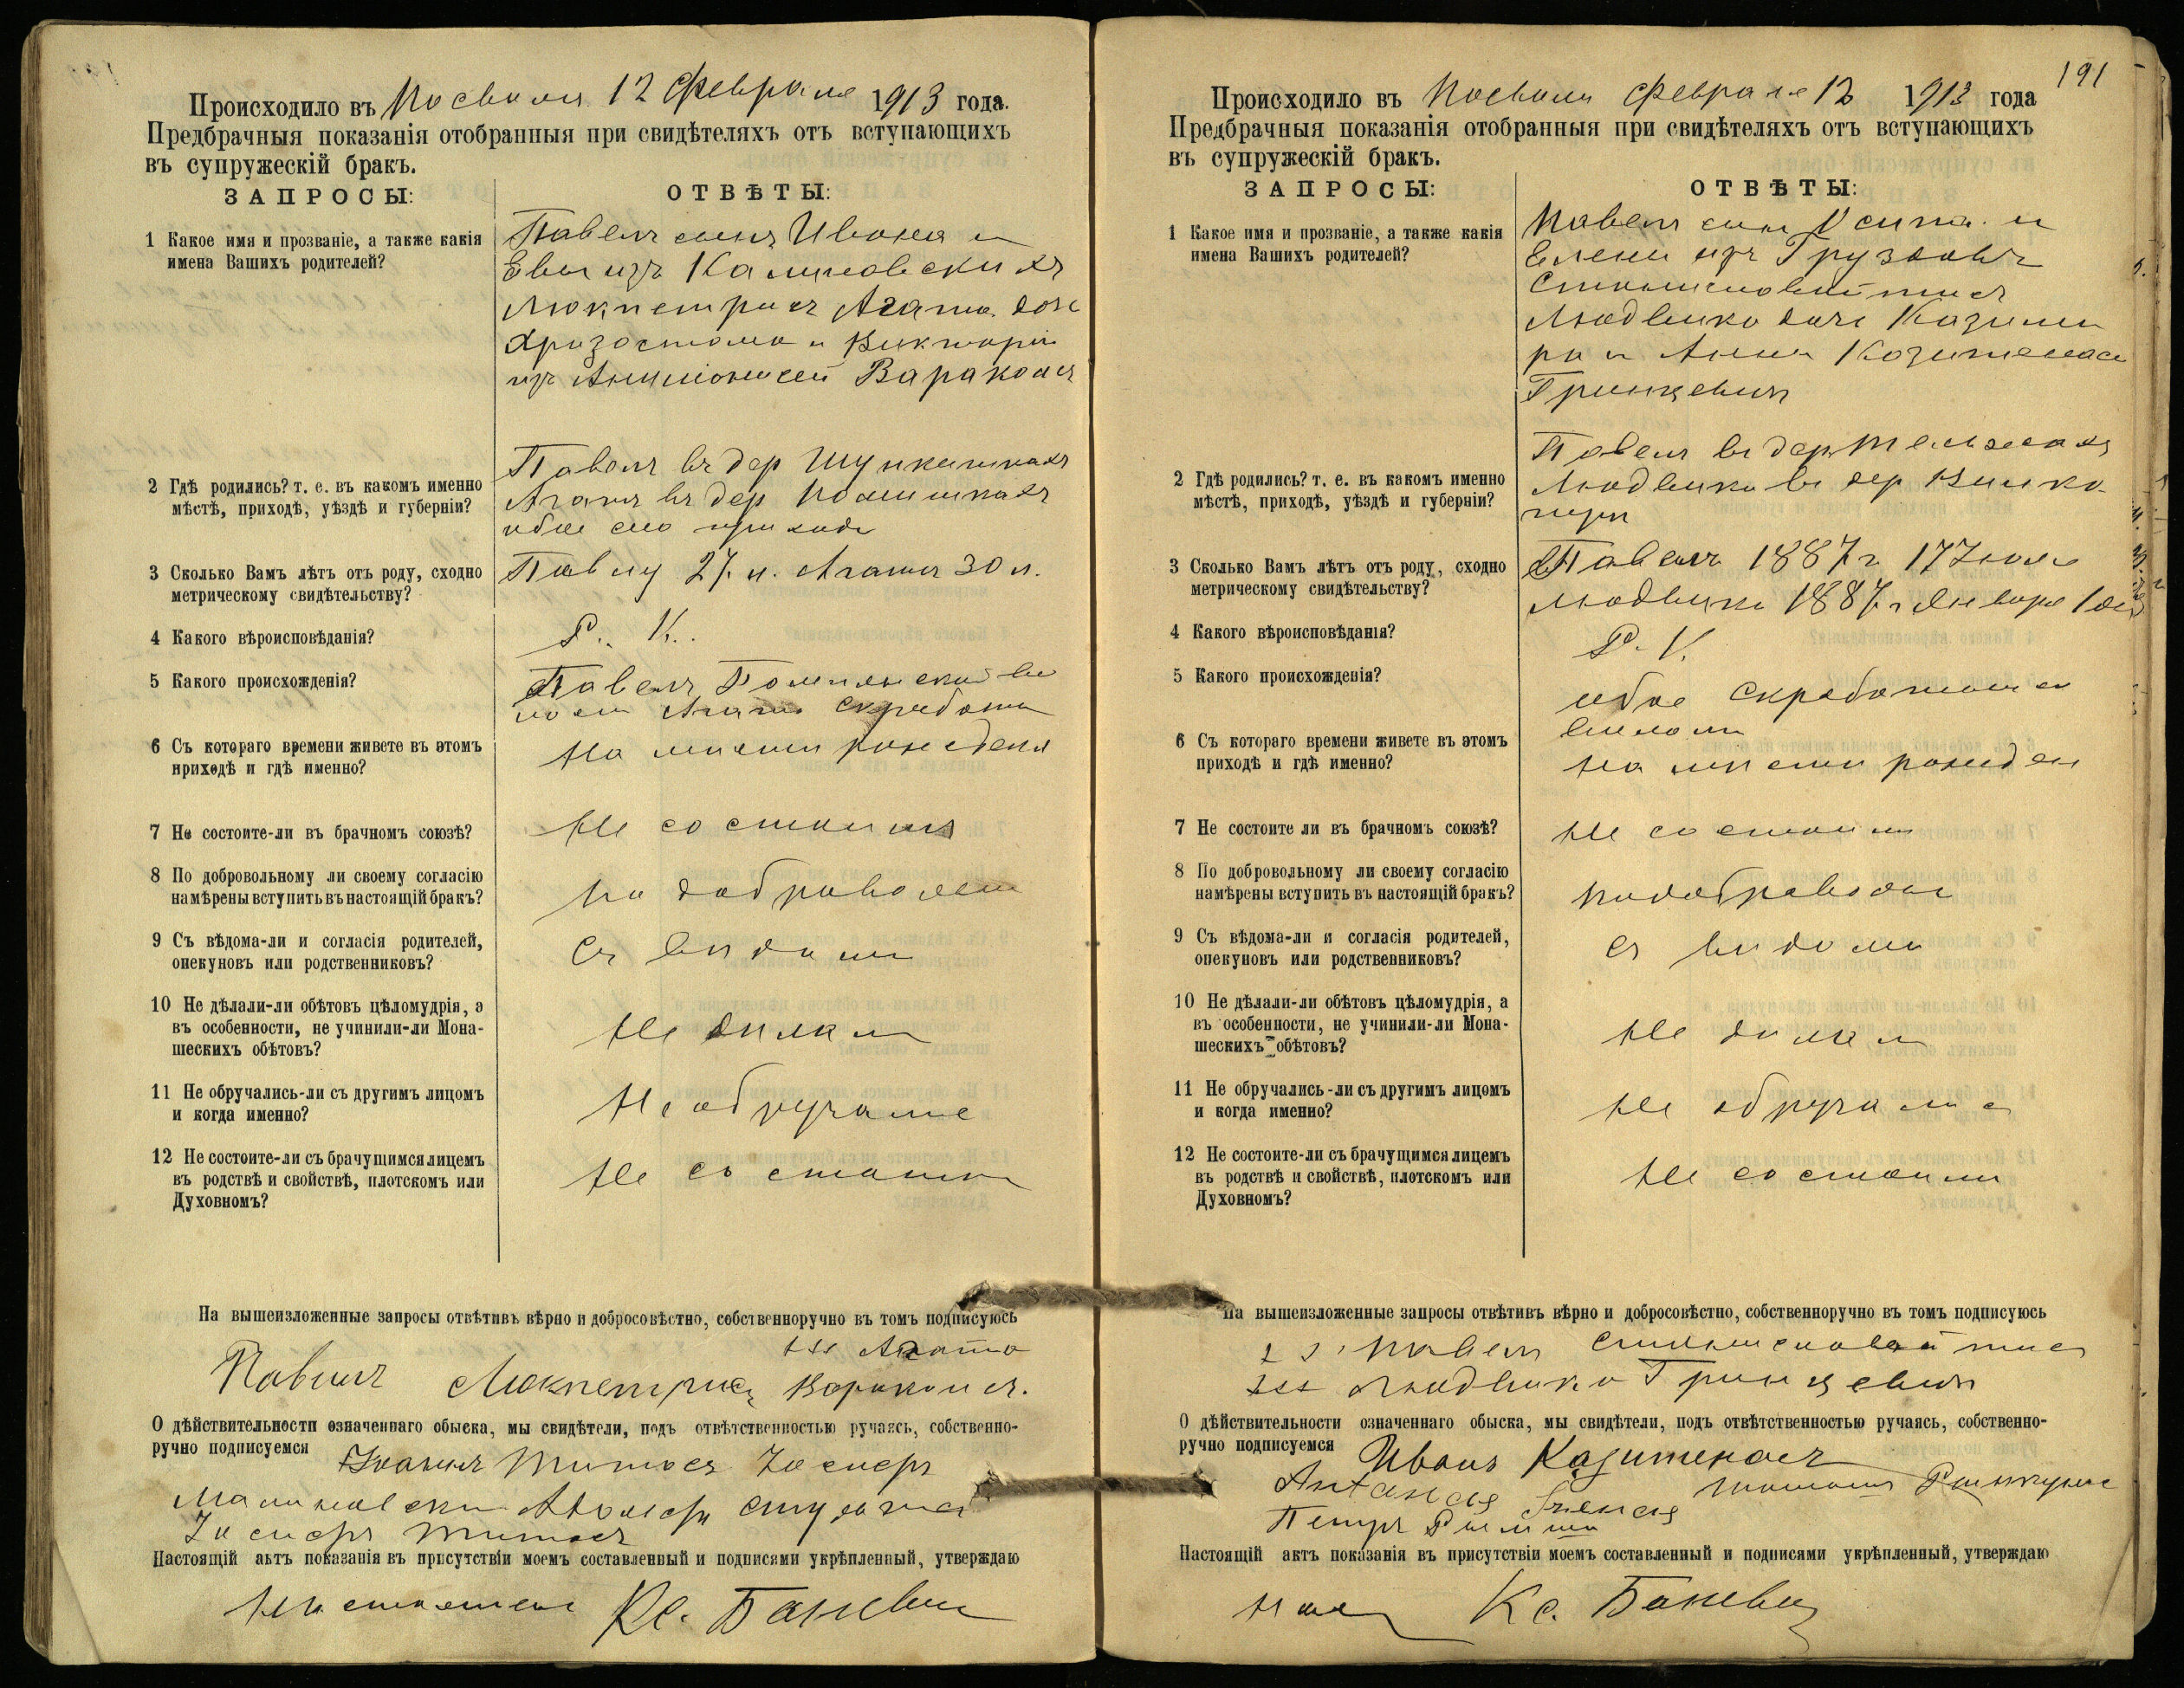 Происходило въ Посволи 12 Февраля 1913 года.
Предбрачныя показанія отобранныя при свидѣтеляхъ отъ вступающихъ
въ супружескій бракъ.
ЗАПРОСЫ:
ОТВѢТЫ:
1 Какое имя и прозваніе, а также какія
имена Вашихъ родителей?
Павелъ сынъ Ивана и
Евы изъ Калиновскихъ
Люкпетрисъ Агата дочь
Хризостома и Викторіи
изъ Варакоисъ
2 Гдѣ родились? т. е. въ какомъ именно
мѣстѣ, приходѣ, уѣздѣ и губерніи?
Павелъ въ дер
Агата въ дер
обое сего прихода
3 Сколько Вамъ лѣтъ отъ роду, сходно
метрическому свидѣтельству?
Павлу 27 л. Агата 30 л.
4 Какого вѣроисповѣданія?
Р. К.
5 Какого происхожденія?
Павелъ
Агата
6 Съ котораго времени живете въ этомъ
приходѣ и гдѣ именно?
На мѣсти рождения
7 Не состоите-ли въ брачномъ союзѣ?
Не состоимъ
8 По добровольному ли своему согласію
намѣрены вступить въ настоящій бракъ?
По добровольн
9 Съ вѣдома-ли и согласія родителей,
опекуновъ или родственниковъ?
Съ видоми
10 Не дѣлали-ли обѣтовъ цѣломудрія, а
въ особенности, не учинили-ли Мона-
шескихъ обѣтовъ?
Не дилали
11 Не обручались-ли съ другимъ лицомъ
и когда именно?
Не обручалис
12 Не состоите-ли съ брачущимся лицемъ
въ родствѣ и свойствѣ, плотскомъ или
Духовномъ?
Не состоим
На вышеизложенные запросы отвѣтивъ вѣрно и добросовѣстно, собственноручно въ томъ подписуюсь
ххх Агата
Павилъ Люкпетрисъ Варакоисъ.
О дѣйствительности означеннаго обыска, мы свидѣтели, подъ отвѣтственностью ручаясь, собственно-
ручно подписуемся Иванъ Титасъ Іосифъ
Малиновски Адольфъ
Іосифъ Титасъ
Настоящій актъ показанія въ присутствіи моемъ составленный и подписями укрѣпленный, утверждаю
Настоятель Кс. Баневич
191
Происходило въ Посволи Февраля 12 1913 года
Предбрачныя показанія отобранныя при свидѣтеляхъ отъ вступающихъ
въ супружескій бракъ.
ЗАПРОСЫ:
ОТВѢТЫ:
1 Какое имя и прозваніе, а также какія
имена Вашихъ родителей?
Павелъ сын Осипа и
Елены изъ Грузовъ
Людвика дочь Казими
ра и Анны Козитенасъ
Гринцевич
2 Гдѣ родились? т. е. въ какомъ именно
мѣстѣ, приходѣ, уѣздѣ и губерніи?
Павелъ въ дер
Людвика въ дер
3 Сколько Вамъ лѣтъ отъ роду, сходно
метрическому свидѣтельству?
Павелъ 1887 г 17 Іюля
Людвика 1887 г Января 1 дня
4 Какого вѣроисповѣданія?
Р. К.
5 Какого происхожденія?
обое
6 Съ котораго времени живете въ этомъ
приходѣ и гдѣ именно?
На мѣсти рожден
7 Не состоите ли въ брачномъ союзѣ?
Не состоим
8 По добровольному ли своему согласію
намѣрены вступить въ настоящій бракъ?
по добровольн
9 Съ вѣдома-ли и согласія родителей,
опекуновъ или родственниковъ?
съ видоми
10 Не дѣлали-ли обѣтовъ цѣломудрія, а
въ особенности, не учинили-ли Мона-
шескихъ обѣтовъ?
Не дилал
11 Не обручались-ли съ другимъ лицомъ
и когда именно?
Не обручалис
12 Не состоите-ли съ брачущимся лицемъ
въ родствѣ и свойствѣ, плотскомъ или
Духовномъ?
Не состоим
На вышеизложенные запросы отвѣтивъ вѣрно и добросовѣстно, собственноручно въ томъ подписуюсь
Павелъ
ххх Людвика Гринцевич
О дѣйствительности означеннаго обыска, мы свидѣтели, подъ отвѣтственностью ручаясь, собственно-
ручно подписуемся Иванъ Казитенасъ
Antanas
Петръ
Настоящій актъ показанія въ присутствіи моемъ составленный и подписями укрѣпленный, утверждаю
Нас Кс. Баневич